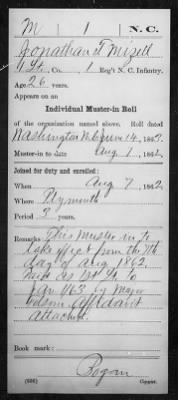 M | 1 | N.C.
Jonathan T Mizell
1 Lt, Co. , 1 Reg't N. C. Infantry.
Age 26 years.
Appears on an
Individual Muster-in Roll
of the organization named above. Roll dated
Washington N.C. 14, 1863.
Muster-in to date Aug 7, 1862
Joined for duty and enrolled:
When Aug 7, 1862
Where Plymouth
Period 3 years.
Remarks This Muster in to
take effect from the 7th
day of Aug 1862.
Paid as 1st Lt to
Jan 1/63 by Major
Affidavit
attached.
Book mark:
(356) Copyist.